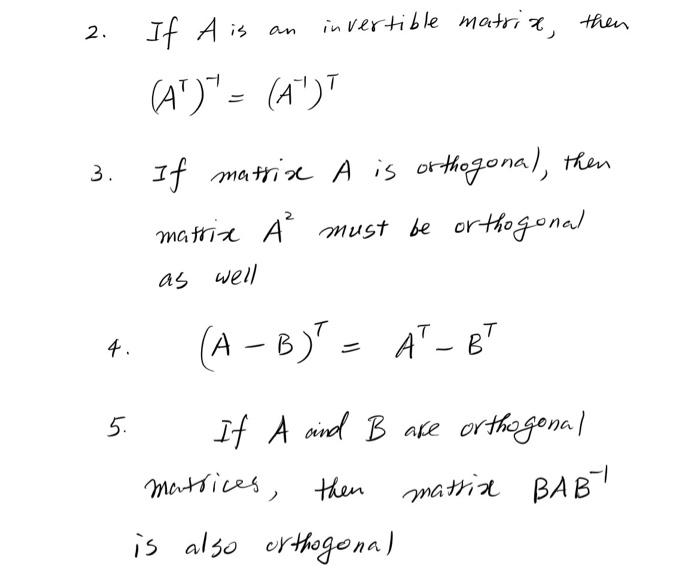 2. If A is an invertible matrix, then
(Aᵀ)⁻¹ = (A⁻¹)ᵀ
3. If matrix A is orthogonal, then
matrix A² must be orthogonal
as well
4. (A – B)ᵀ = Aᵀ – Bᵀ
5. If A and B are orthogonal
matrices, then matrix BAB⁻¹
is also orthogonal